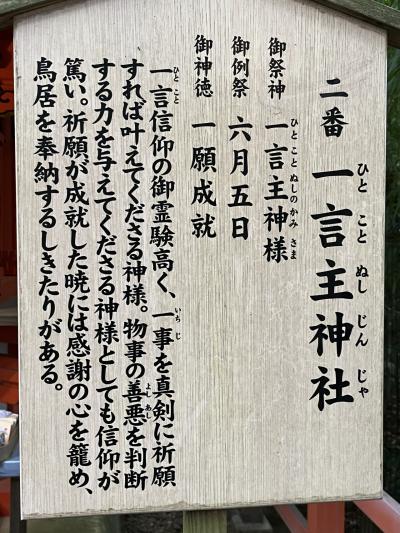 二番 一言主神社
ひとことぬしじんじゃ
御祭神 一言主神様
ひとことぬしのかみさま
御例祭 六月五日
御神徳 一願成就
一言信仰の御霊験高く、一事を真剣に祈願
ひとこと いちじ
すれば叶えてくださる神様。物事の善悪を判断
よしあし
する力を与えてくださる神様としても信仰が
篤い。祈願が成就した暁には感謝の心を籠め、
鳥居を奉納するしきたりがある。